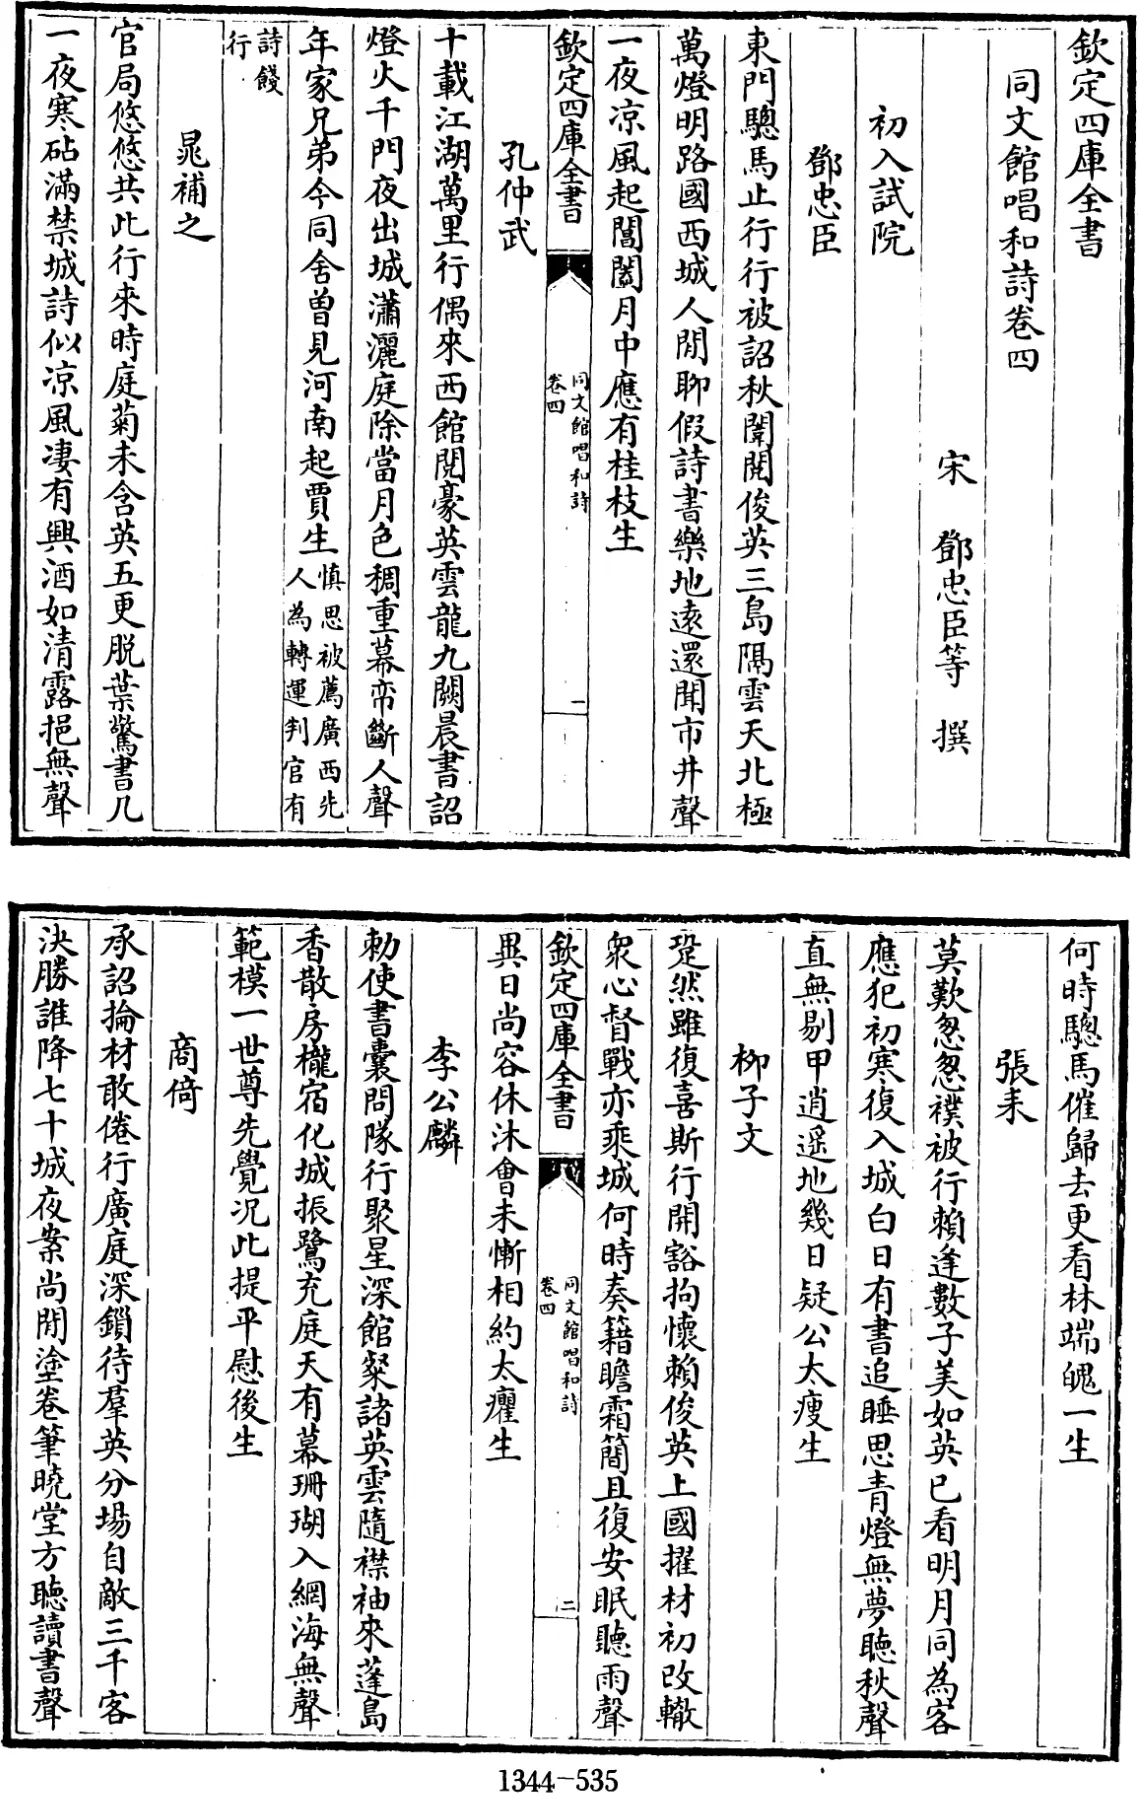 欽定四庫全書
同文館唱和詩卷四
宋　鄧忠臣等　撰
初入試院
鄧忠臣
東門驄馬止行行被詔秋闈閱俊英三島隔雲天北極
萬燈明路國西城人閒聊假詩書樂地遠還聞市井聲
一夜凉風起閶闔月中應有桂枝生
欽定四庫全書
同文館唱和詩
卷四
一
孔仲武
十載江湖萬里行偶來西館閱豪英雲龍九闕晨書詔
燈火千門夜出城瀟灑庭除當月色稠重幕帟斷人聲
年家兄弟今同舍曽見河南起賈生慎思被薦廣西先
人為轉運判官有
詩餞
行
晁補之
官局悠悠共此行來時庭菊未含英五更脱葉驚書几
一夜寒砧滿禁城詩似凉風凄有興酒如清露挹無聲
何時驄馬催歸去更看林端魄一生
張耒
莫歎怱怱襆被行賴逢數子美如英已看明月同為客
應犯初寒復入城白日有書追睡思青燈無夢聴秋聲
直無剔甲逍遥地幾日疑公太瘦生
柳子文
跫然雖復喜斯行開豁拘懷賴俊英上國擢材初改轍
衆心督戰亦乘城何時奏籍瞻霜簡且復安眠聽雨聲
欽定四庫全書
同文館唱和詩
卷四
二
異日尚容休沐會未慚相約太癯生
李公麟
勅使書囊問隊行聚星深館粲諸英雲隨襟袖來蓬島
香散房櫳宿化城振鷺充庭天有幕珊瑚入網海無聲
範模一世尊先覺况此提平慰後生
商倚
承詔掄材敢倦行廣庭深鎖待羣英分場自敵三千客
決勝誰降七十城夜案尚閒塗卷筆曉堂方聴讀書聲
1344-535